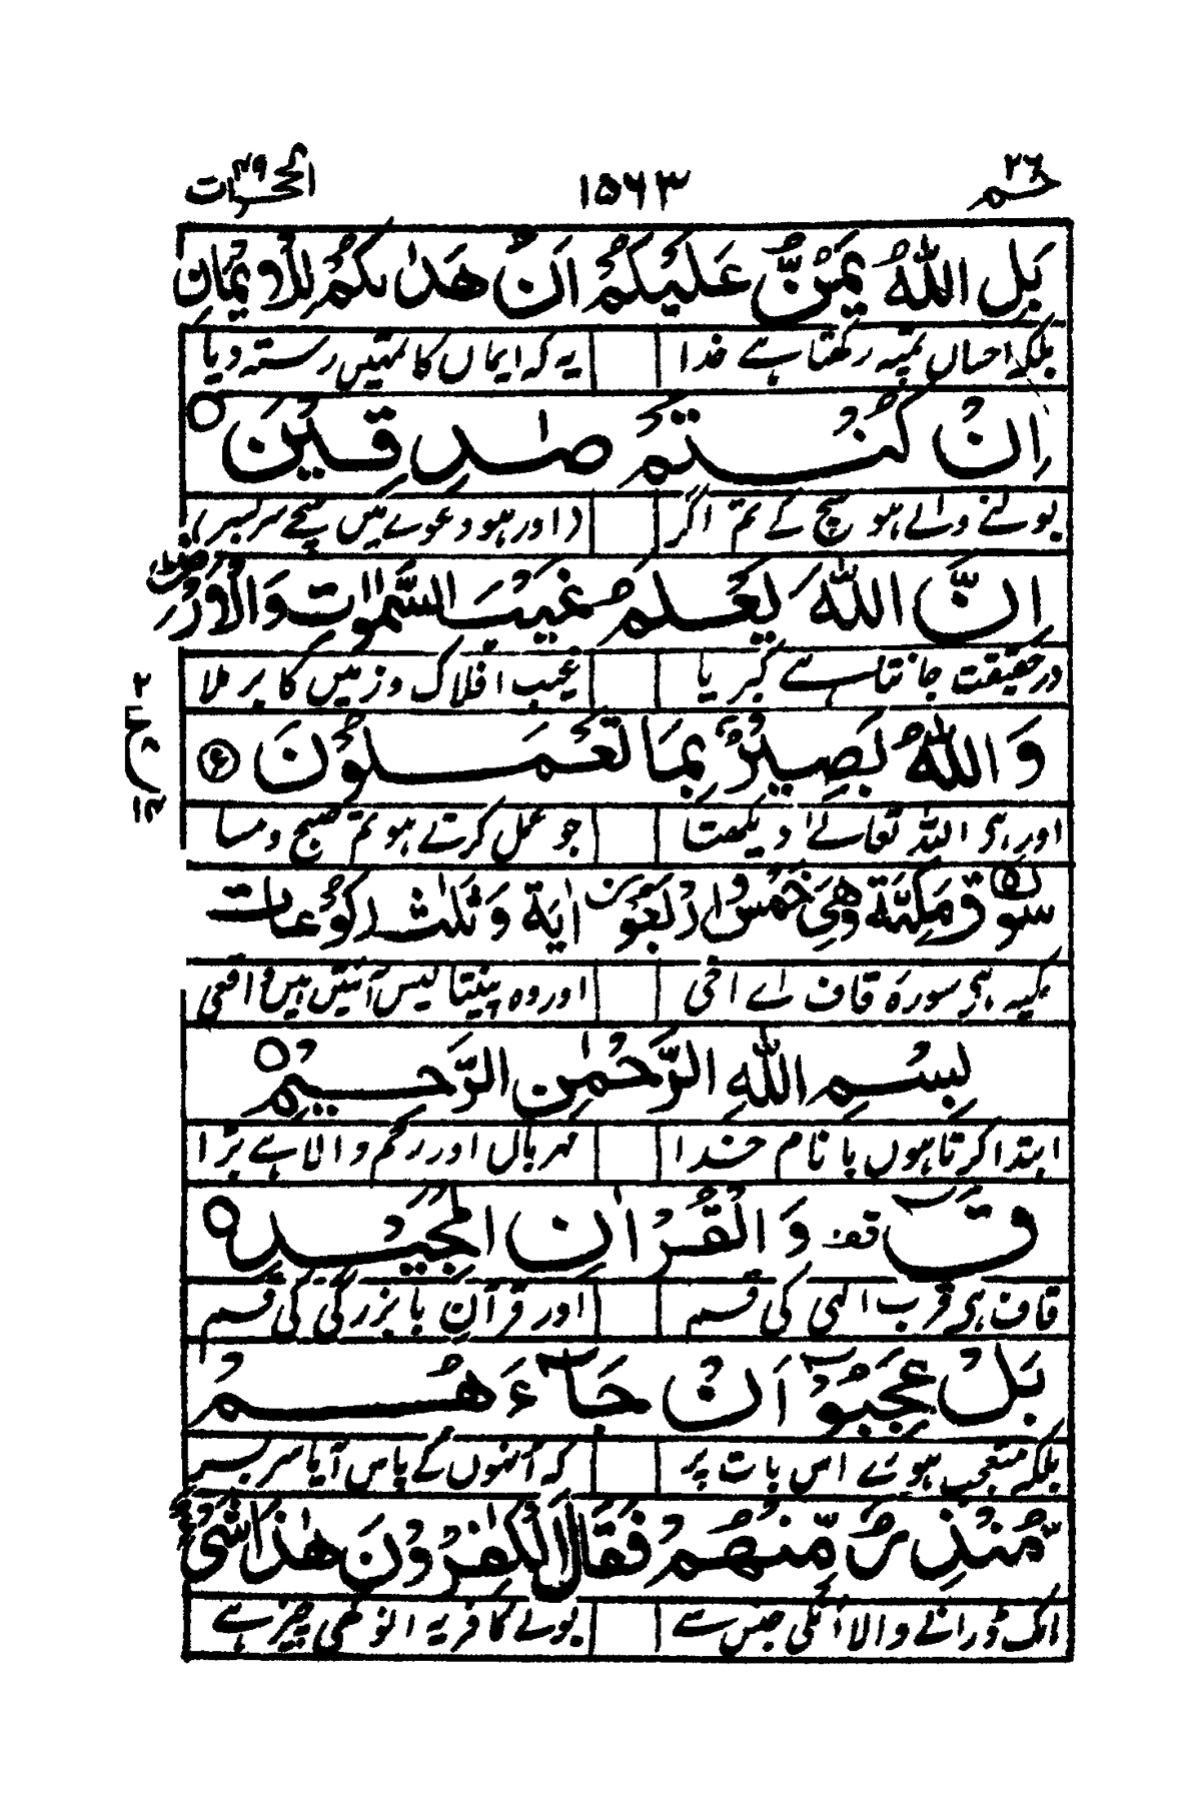 حٰمٓ ٢٦ ١٥٦٣ الحجرات ٤٩
بَلِ اللّٰهُ يَمُنُّ عَلَيْكُمْ اَنْ هَدٰىكُمْ لِلْاِيْمَانِ
بلکہ احساں تمپہ رکھتا ہے خدا یہ کہ ایماں کا تمہیں رستہ دیا
اِنْ كُنْتُمْ صٰدِقِيْنَ ○
بولنے والے ہو سچ کے تم اگر (اور ہو دعوے میں سچے سربسر)
اِنَّ اللّٰهَ يَعْلَمُ غَيْبَ السَّمٰوٰتِ وَالْاَرْضِ ؕ
درحقیقت جانتا ہے کبریا غیب افلاک و زمیں کا برملا
وَاللّٰهُ بَصِيْرٌۢ بِمَا تَعْمَلُوْنَ
اور ہی اللہ تعالےٰ دیکھتا جو عمل کرتے ہو تم صبح و مسا
٢ ع ١٤
سورۃ ق مَكِّيَّة وَّهِيَ خَمْسٌ وَّ اَرْبَعُوْنَ اٰيَةً وَّ ثَلٰثُ رُكُوْعَات
مکیہ ہی سورہ قاف اے اخی اور وہ پینتالیس آئتیں ہیں واقعی
بِسْمِ اللّٰهِ الرَّحْمٰنِ الرَّحِيْمِ ○
ابتدا کرتا ہوں با نام خدا مہرباں اور رحم والا ہے بڑا
قٓ قف وَالْقُرْاٰنِ الْمَجِيْدِ ○
قاف ہی قرب الٰہی کی قسم اور قرآن با بزرگی کی قسم
بَلْ عَجِبُوْٓا اَنْ جَآءَهُمْ
بلکہ متعجب ہوے اس بات پر کہ اُنہوں کے پاس آیا سربسر
مُّنْذِرٌ مِّنْهُمْ فَقَالَ الْكٰفِرُوْنَ هٰذَا شَيْءٌ
اک ڈرانے والا اُنکی جنس سے بولے کافر یہ انوکھی چیز ہے